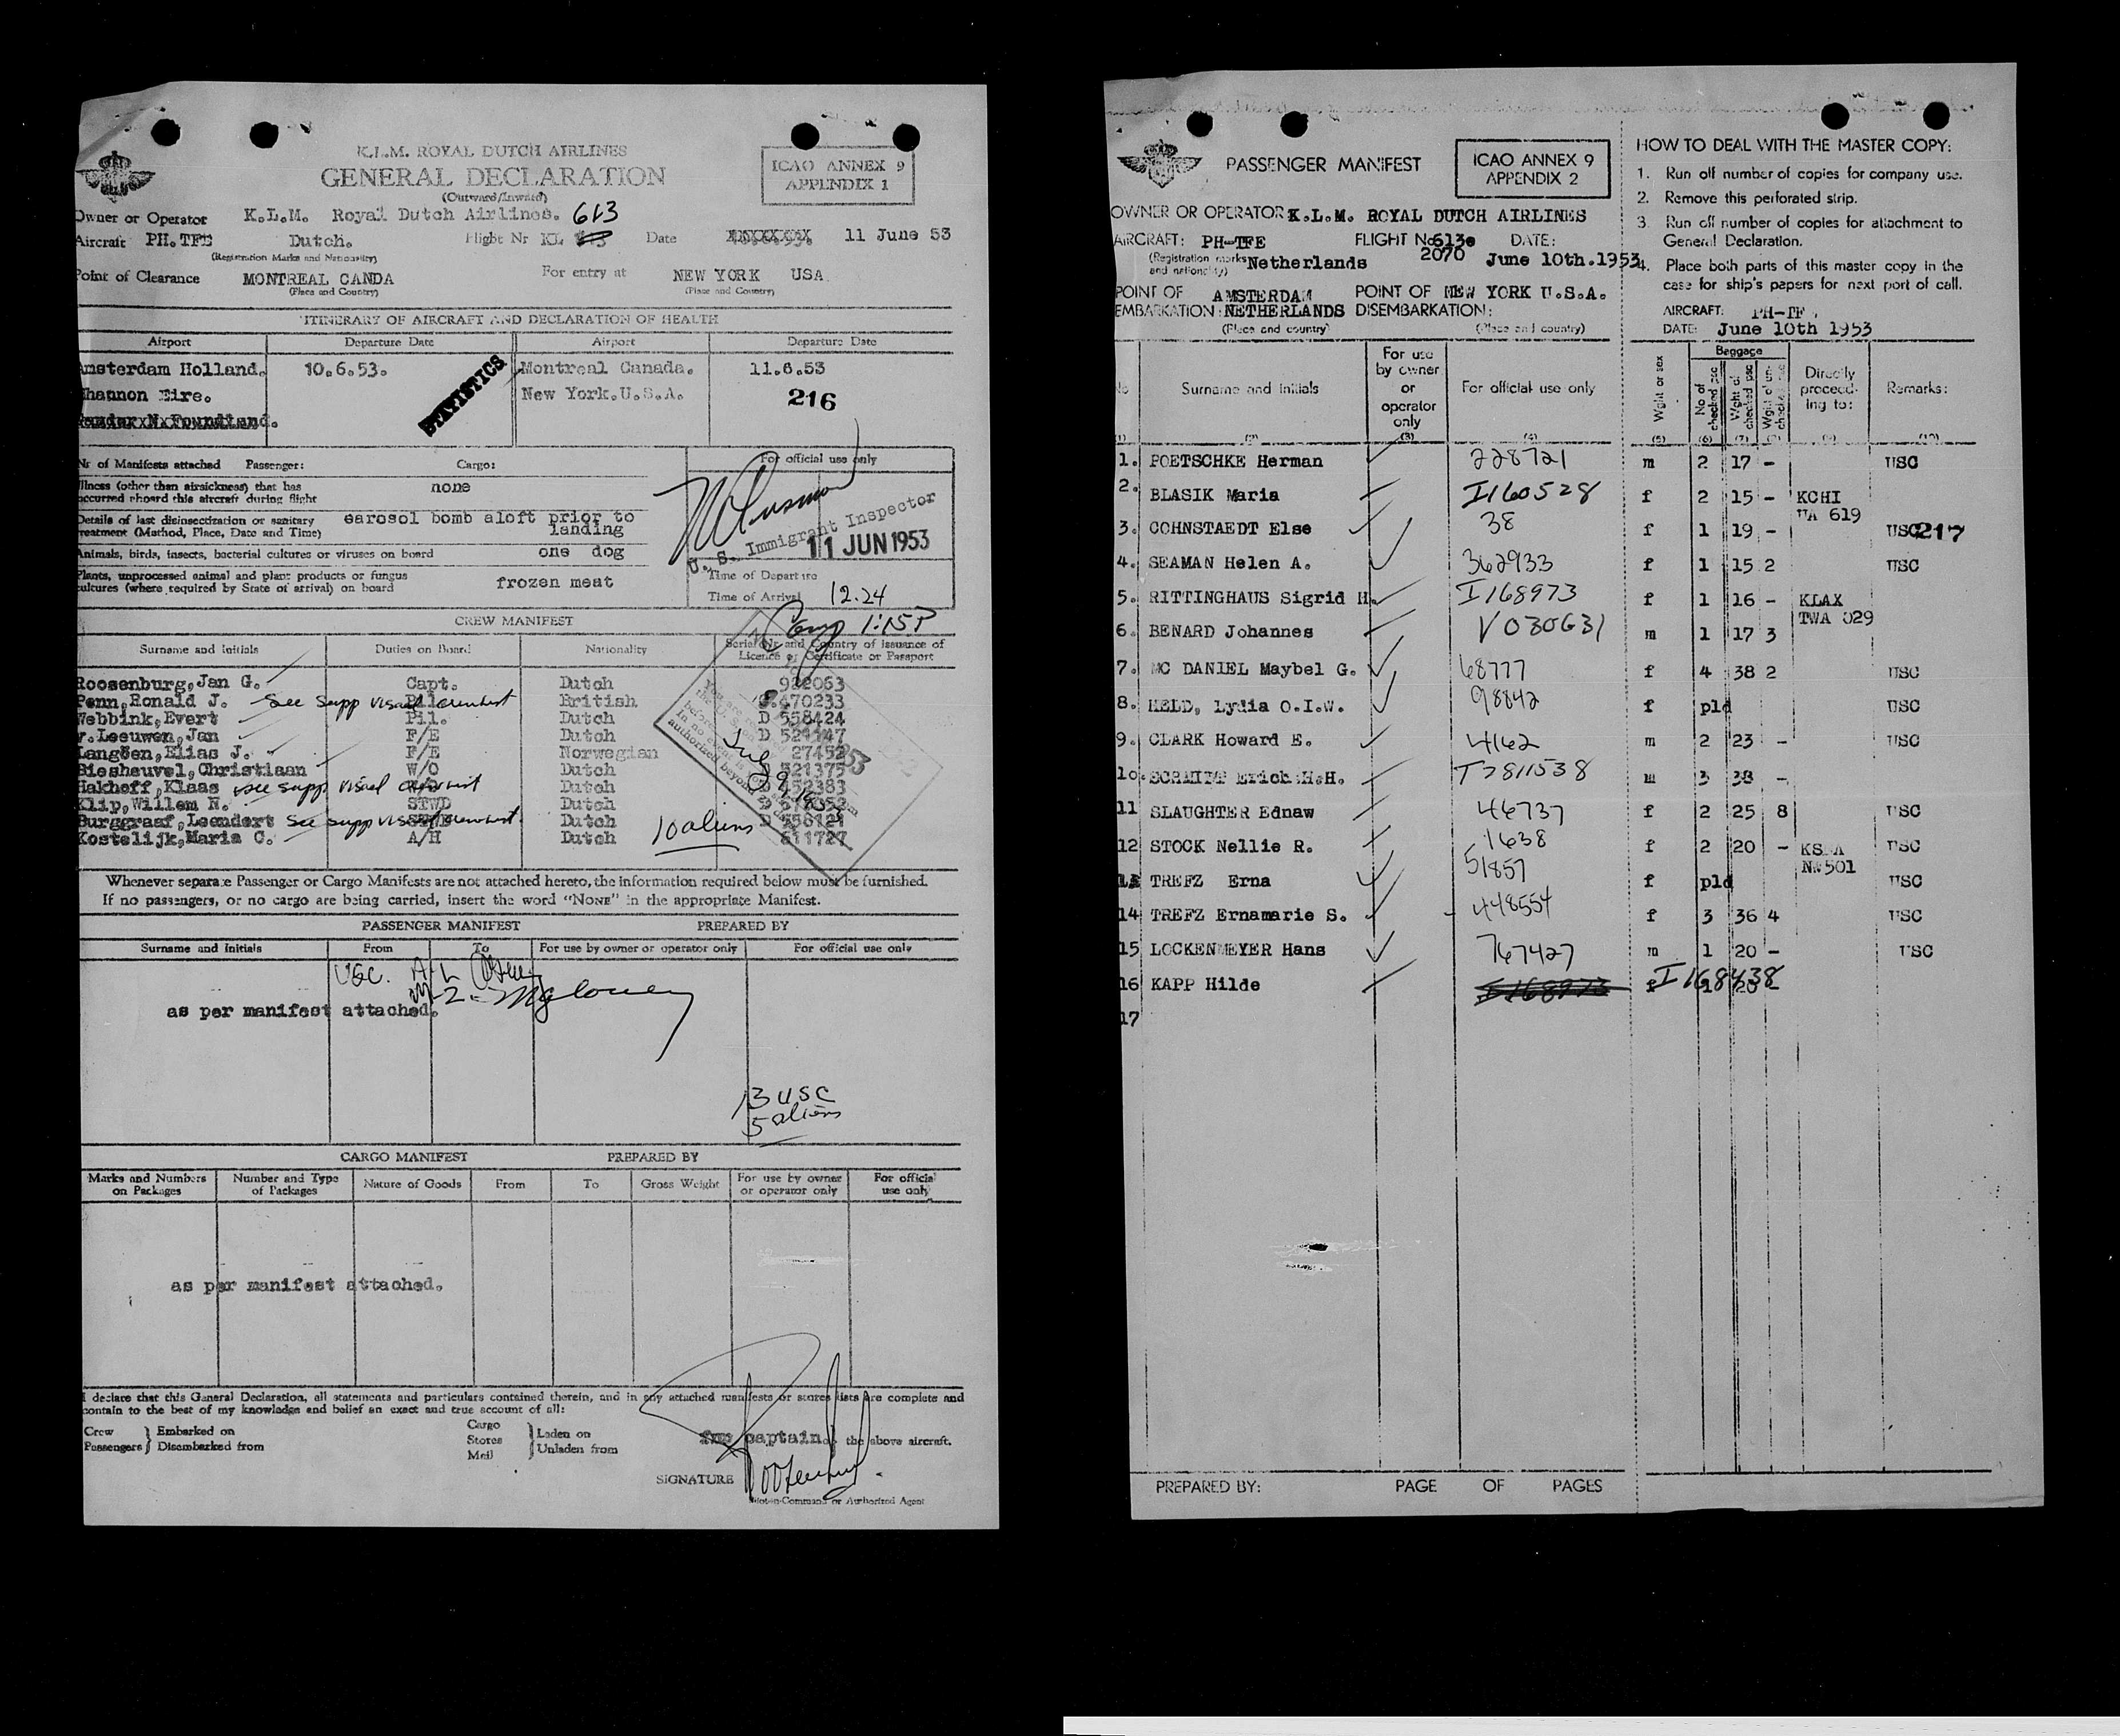 K.L.M. ROYAL DUTCH AIRLINES
GENERAL DECLARATION
(Outward/Inward)
ICAO ANNEX 9
APPENDIX 1
Owner or Operator K.L.M. Royal Dutch Airlines. 613
Aircraft PH.TFE Dutch. Flight Nr KL Date 11 June 53
(Registration Marks and Nationality)
Point of Clearance MONTREAL CANDA For entry at NEW YORK USA
(Place and Country) (Place and Country)
ITINERARY OF AIRCRAFT AND DECLARATION OF HEALTH
Airport Departure Date Airport Departure Date
Amsterdam Holland. 10.6.53. Montreal Canada. 11.6.53
Shannon Eire. New York.U.S.A. 216
STATISTICS
Nr of Manifests attached Passenger: Cargo:
For official use only
Illness (other than airsickness) that has
occurred aboard this aircraft during flight none
Details of last disinsectization or sanitary
treatment (Method, Place, Date and Time) earosol bomb aloft prior to
landing
U. S. Immigrant Inspector
11 JUN 1953
Animals, birds, insects, bacterial cultures or viruses on board one dog
Plants, unprocessed animal and plant products or fungus
cultures (where required by State of arrival) on board frozen meat
Time of Departure
Time of Arrival 12.24
1:15P
CREW MANIFEST
Surname and Initials Duties on Board Nationality Serial Nr and Country of Issuance of
Licence or Certificate or Passport
Roosenburg,Jan G. Capt. Dutch 922063
Penn,Ronald J. see supp visaed crewlist Pil. British 470233
Webbink,Evert Pil. Dutch D 558424
v.Leeuwen,Jan F/E Dutch D 521147
Langöen,Elias J. F/E Norwegian 27452
Biesheuvel,Christiaan W/O Dutch 521375
Hakhoff,Klaas see supp visaed crewlist Dutch 452383
Klip,Willem N. STWD Dutch
Burggraaf,Leendert See supp visaed crewlist. Dutch D 558121
Kostelijk,Maria C. A/H Dutch 611727
10 aliens
Whenever separate Passenger or Cargo Manifests are not attached hereto, the information required below must be furnished.
If no passengers, or no cargo are being carried, insert the word "NONE" in the appropriate Manifest.
PASSENGER MANIFEST PREPARED BY
Surname and Initials From To For use by owner or operator only For official use only
USC.
as per manifest attached.
13 USC
5 aliens
CARGO MANIFEST PREPARED BY
Marks and Numbers
on Packages
Number and Type
of Packages
Nature of Goods From To Gross Weight
For use by owner
or operator only
For official
use only
as per manifest attached.
I declare that this General Declaration, all statements and particulars contained therein, and in any attached manifests or stores lists are complete and
contain to the best of my knowledge and belief an exact and true account of all:
Crew
Passengers
Embarked on
Disembarked from
Cargo
Stores
Mail
Laden on
Unladen from
captain. the above aircraft.
SIGNATURE
Pilot-in-Command or Authorized Agent
PASSENGER MANIFEST
ICAO ANNEX 9
APPENDIX 2
OWNER OR OPERATOR K.L.M. ROYAL DUTCH AIRLINES
AIRCRAFT: PH-TFE FLIGHT No 613e DATE:
(Registration marks and nationality) Netherlands 2070 June 10th.1953
POINT OF EMBARKATION: AMSTERDAM NETHERLANDS POINT OF DISEMBARKATION: NEW YORK U.S.A.
(Place and country) (Place and country)
HOW TO DEAL WITH THE MASTER COPY:
1. Run off number of copies for company use.
2. Remove this perforated strip.
3. Run off number of copies for attachment to
General Declaration.
4. Place both parts of this master copy in the
case for ship's papers for next port of call.
AIRCRAFT: PH-TF
DATE: June 10th 1953
Surname and Initials
For use
by owner
or
operator
only
For official use only
Wght or sex
Baggage
No of checked pcs
Wght of checked pcs
Directly
proceed-
ing to:
Remarks:
(1) (2) (3) (4) (5) (6) (7) (8) (9) (10)
1. POETSCHKE Herman 228721 m 2 17 - USC
2. BLASIK Maria I160528 f 2 15 - KCHI
UA 619
3. COHNSTAEDT Else 38 f 1 19 - USC 217
4. SEAMAN Helen A. 362933 f 1 15 2 USC
5. RITTINGHAUS Sigrid H. I168973 f 1 16 - KLAX
TWA 029
6. BENARD Johannes V030631 m 1 17 3
7. MC DANIEL Maybel G. 68777 f 4 38 2 USC
8. HELD, Lydia O.I.W. 98842 f pld USC
9. CLARK Howard E. 4162 m 2 23 - USC
10. SCHMIDT Erich H.H. T2811538 m 3 38 -
11 SLAUGHTER Ednaw 46737 f 2 25 8 USC
12 STOCK Nellie R. 1638 f 2 20 - USC
NW501
13 TREFZ Erna 51857 f pld USC
14 TREFZ Ernamarie S. 448554 f 3 36 4 USC
15 LOCKENMEYER Hans 767427 m 1 20 - USC
16 KAPP Hilde I168973 f I168438
17
PREPARED BY: PAGE OF PAGES